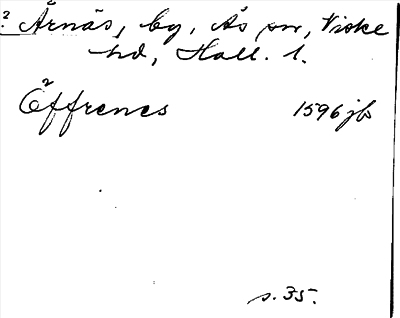 ? Årnäs, by, Ås sn, Viske
hd, Hall. l.
Öffrenes 1596 jb
s. 35.